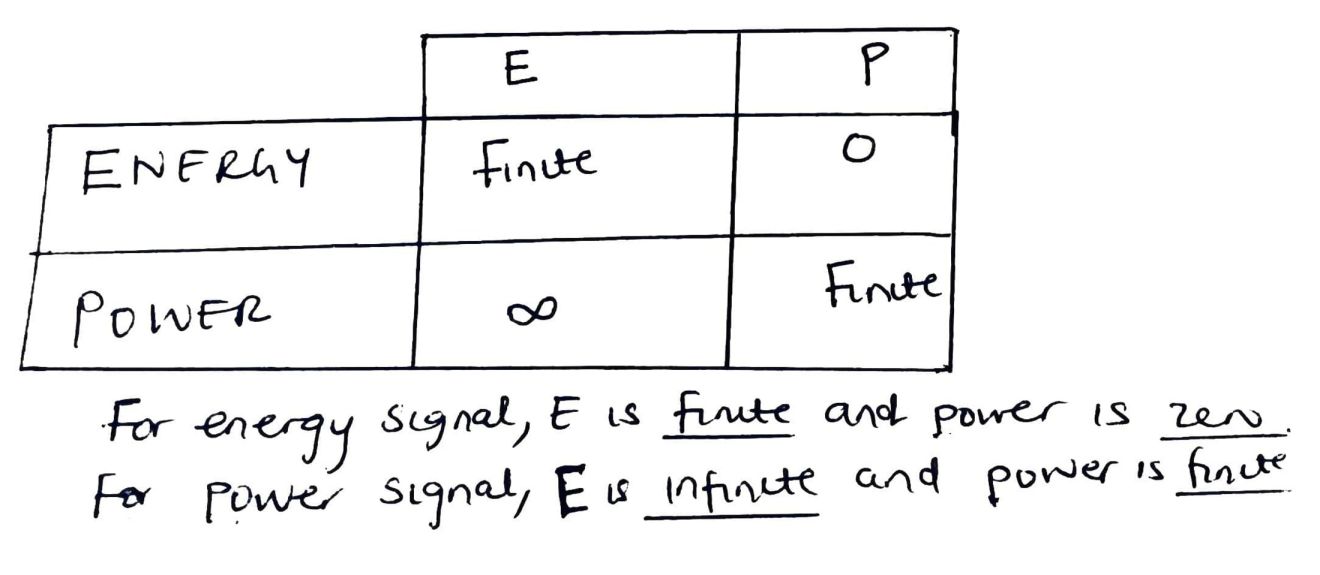 E P
ENERGY Finite 0
POWER ∞ Finite
For energy signal, E is finite and power is zero.
For power signal, E is infinite and power is finite